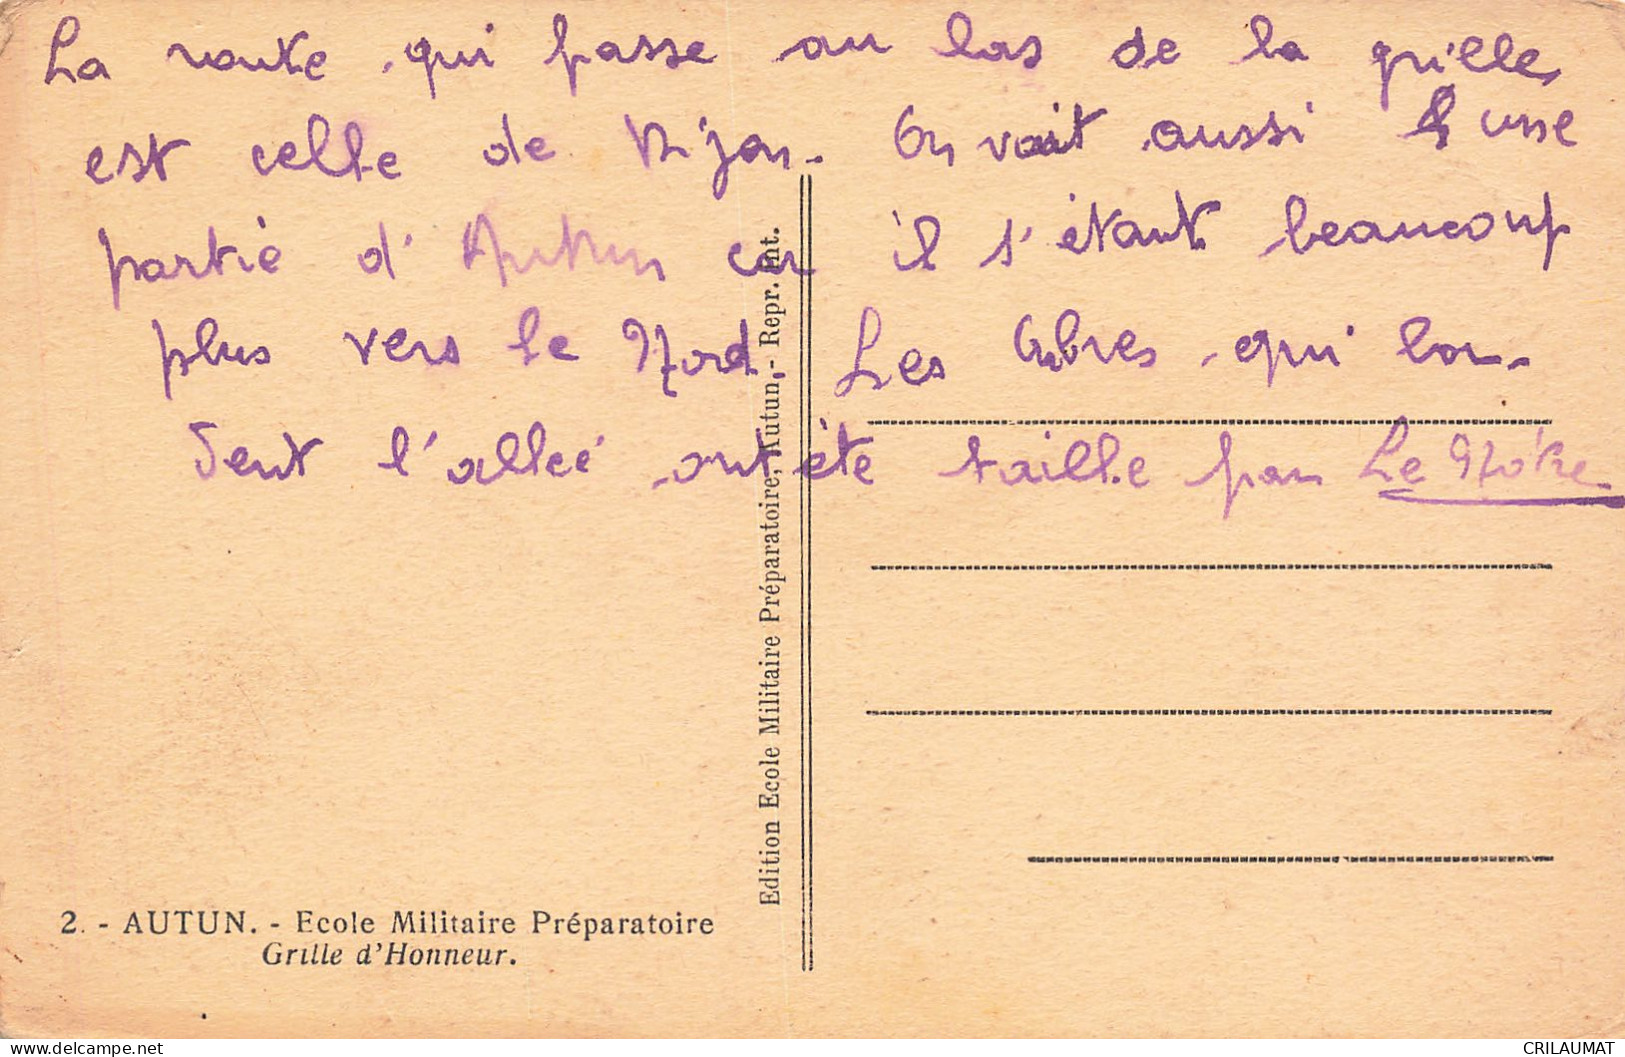 La route qui passe au bas de la grille,
est celle de Dijon. On voit aussi une
partie d'Autun car il s'étant beaucoup
plus vers le Nord. Les Arbres qui lon-
gent l'alleé ont été taille par Le Nôtre
Edition Ecole Militaire Préparatoire, Autun,- Repr. Int.
2. - AUTUN. - Ecole Militaire Préparatoire
Grille d'Honneur.
CRILAUMAT